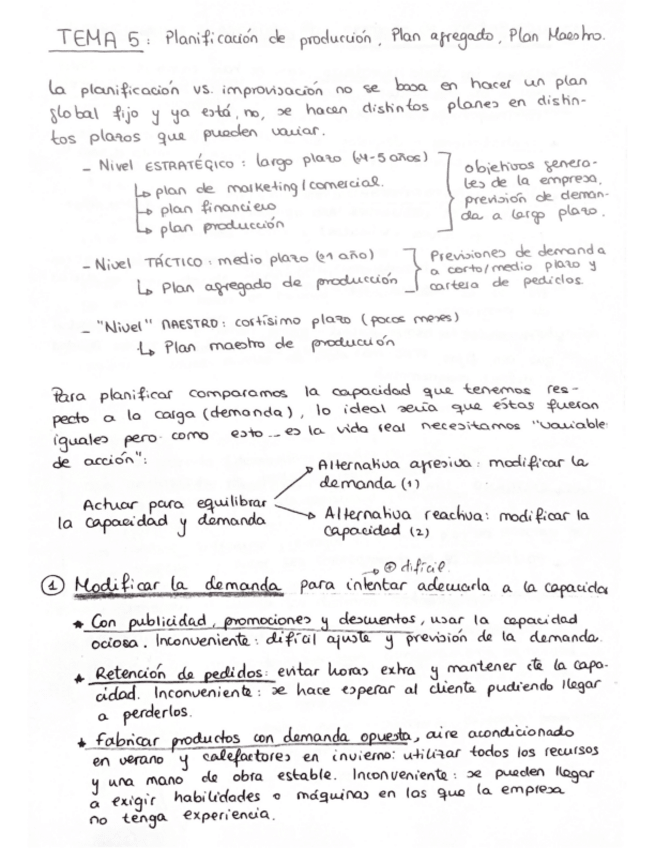 TEMA 5: Planificación de producción, Plan agregado, Plan Maestro.
La planificación vs. improvisación no se basa en hacer un plan
global fijo y ya está, no, se hacen distintos planes en distin-
tos plazos que pueden variar.
- Nivel ESTRATÉGICO: largo plazo (~4-5 años)
↳ plan de marketing/comercial.
↳ plan financiero
↳ plan producción
objetivos genera-
les de la empresa,
previsión de deman-
da a largo plazo.
- Nivel TÁCTICO: medio plazo (≥1 año)
↳ Plan agregado de producción
Previsiones de demanda
a corto/medio plazo y
cartera de pedidos.
- "Nivel" MAESTRO: cortísimo plazo (pocos meses)
↳ Plan maestro de producción
Para planificar comparamos la capacidad que tenemos res-
pecto a la carga (demanda), lo ideal sería que éstas fueran
iguales pero como esto... es la vida real necesitamos "variable
de acción":
Actuar para equilibrar
la capacidad y demanda
Alternativa agresiva: modificar la
demanda (1)
Alternativa reactiva: modificar la
capacidad (2)
→ ⊕ difícil.
① Modificar la demanda para intentar adecuarla a la capacida
* Con publicidad, promociones y descuentos, usar la capacidad
ociosa. Inconveniente: difícil ajuste y previsión de la demanda.
* Retención de pedidos: evitar horas extra y mantener cte la capa-
cidad. Inconveniente: se hace esperar al cliente pudiendo llegar
a perderlos.
* Fabricar productos con demanda opuesta, aire acondicionado
en verano y calefactores en invierno: utilizar todos los recursos
y una mano de obra estable. Inconveniente: se pueden llegar
a exigir habilidades o máquinas en las que la empresa
no tenga experiencia.